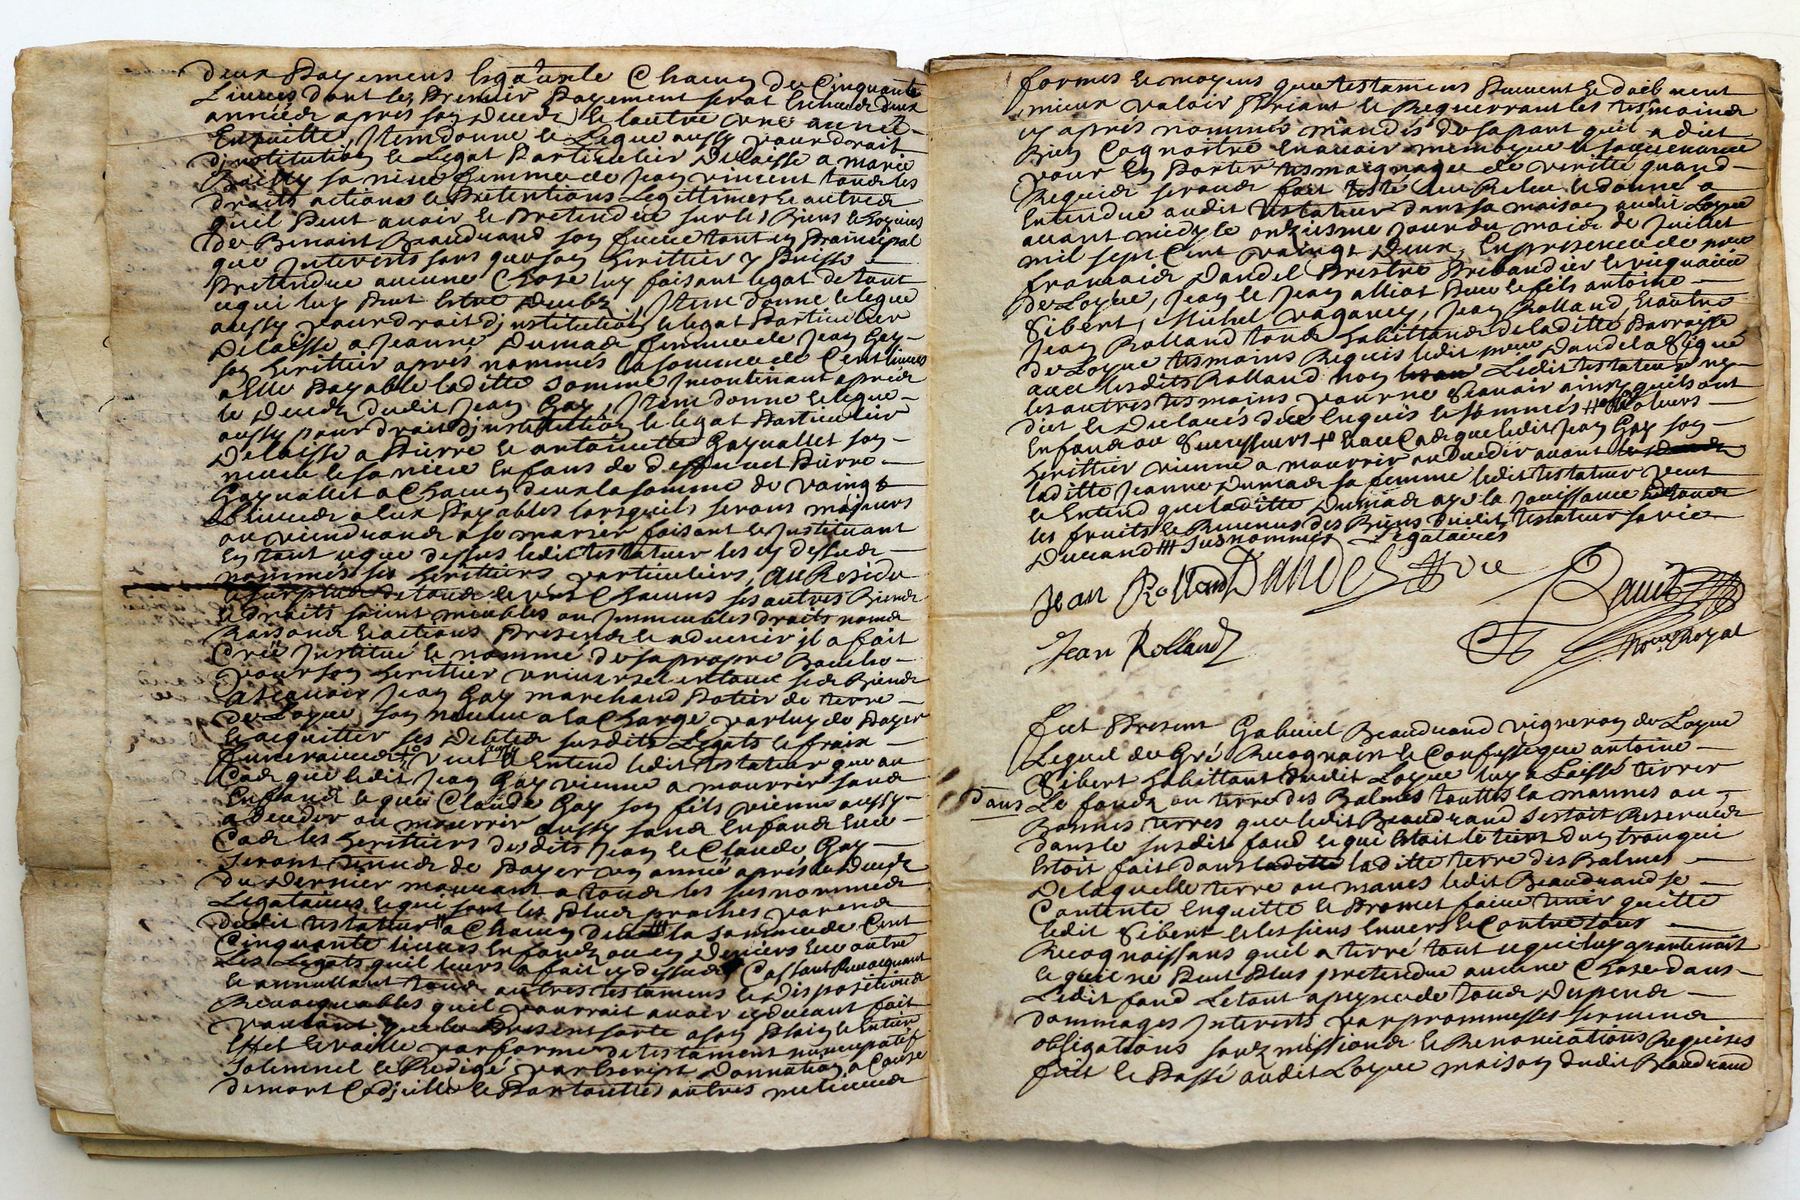 deux payemens esgaux de Chacun de Cinquante
Livres dont le premier payement serat escheu deux
années apres son deces et lautre une année
Ensuitte, Item donne et Legue aussy pour droit
dinstitution et Legat particulier delaisse a marie
sa niece femme de Jean vincent tous les
droits actions et pretentions Legittimes et autres
quil peut avoir et pretendre sur les Biens et hoyries
de Benoist Beaudrand son frere tant en principal
que Interests sans que son heritier y puisse
pretendre aucune Chose luy faisant legat de tout
ce qui luy peut estre deub, Item donne et legue
aussy pour droit dinstitution et legat particulier
delaisse a Jeanne Dumas femme de Jean Gay
son heritier apres nommés la somme de Cent livres
a elle payable laditte somme Incontinant apres
le deces dudit Jean Gay, Item donne et legue
aussy pour droit dinstitution et legat particulier
delaisse a pierre et antoinette Gayvallet son
neveu et sa niece Enfans de deffunct pierre
Gayvallet a Chacun deux la somme de vaingt
livres a eux payables lorsquils seront majeurs
ou viendront a se marier faisant et Instituant
En tout ce que dessus ledit testateur les cy dessus
nommés ses heritiers particuliers, Au Residu
et surplus de tous et uns Chacuns ses autres Biens
et droits soient meubles ou Immeubles droits noms
Raisons et actions presens et advenir il a fait
Creé Institué et nommé de sa propre Bouche
pour son heritier universel en tous ses Biens
Casçavoir Jean Gay marchand potier de terre
de Loyse son neveu a la Charge par luy de payer
et acquitter ses debtes susdits Legats et frais
funeraires veut aussy et Entend ledit testateur que au
Cas que ledit Jean Gay vienne a mourrir sans
Enfans et que Claude Gay son fils vienne aussy
a deceder ou mourrir aussy sans Enfans Ence
Cas les heritiers desdits Jean et Claude Gay
seront tenus de payer un année apres le deces
du dernier mourant a tous les susnommés
Legataires et qui sont les plus proches parens
dudit testateur a Chacun deux la somme de Cent
Cinquante livres en fonds ou en deniers Ence outre
Les Legats quil leurs a fait cy dessus Cassant Revocquant
et annullant tous autres testamens et dispositions
Revocquables quil pourroit avoir cy devant fait
voulant que le present sorte a son plein et Entier
Effet et vaille par forme de testament nuncupatif
solemnel et Redigé par Escript donnation a Cause
de mort Codicille et par touttes autres meilleures
formes et moyens que testamens peuvent et doibvent
mieux valoir priant et Requerrant les tesmoins
cy aprés nommés mandés de sa part quil a dict
Bien Cognoistre En avoir memoyre et souvenance
pour En porter tesmoignage de verité quand
Requis seront fait testé leu Releu et donne a
Entendre audit testateur dans sa maison audit Loyse
avant midy le onziesme jour du mois de Juillet
mil sept Cent vaingt deux, En presence de mre
francois Dandel prestre prebandier et vicquaire
de Loyse, Jean et Jean alliot pere et fils antoine
Gibert, Michel vaganey, Jean Rolland, et autre
Jean Rolland tous habittans de laditte parroisse
de Loyse tesmoins Requis ledit mre Dandel a signé
avec lesdits Rolland non Ledit testateur ny
les autres tesmoins pour ne sçavoir ainsy quils ont
dict et declarés de ce Enquis et sommés
Enfans ou successeurs et au Cas que ledit Jean Gay son
heritier vienne a mourrir ou deceder avant
laditte Jeanne Dumas sa femme ledit testateur veut
et Entend que laditte Dumas aye la Jouissance
les fruits et Revenus des Biens dudit testateur sa vie
Durand susnommés Legataires
Jean Rolland Dandel vic
Jean Rolland
nore Royal
fut present Gabriel Beaudrand vigneron de Loyse
Lequel de Gré Recognoit et Confesse que antoine
Gibert habittant dudit Loyse luy a Laissé tirrer
dans Le fonds ou terre des Balmes touttes la marnes ou
Bonnes terres que ledit Beaudrand sestoit Reservés
dans le susdit fond et que Estoit le tiers dun trou qui
Estoit fait dans laditte terre des Balmes
De laquelle terre ou marnes ledit Beaudrand se
Contente Enquitte et promet faire tenir quitte
ledit Gibert et les siens Envers et Contre tous
Recognoissans quil a tirré tout ce qui luy apartenoit
et quil ne peut plus pretendre aucune Chose dans
Ledit fond Le tout a peyne de tous despens
dommages Interests par prommesses sermens
obligations soubzmissions et Renonciations Requises
fait et passé audit Loyse maison dudit Beaudrand